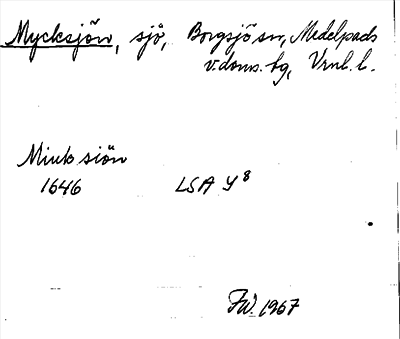 Mycksjön, sjö, Borgsjö sn, Medelpads
v. doms. tg, Vrnl. l.
Miuk siön
1646 LSA Y8
FW. 1967